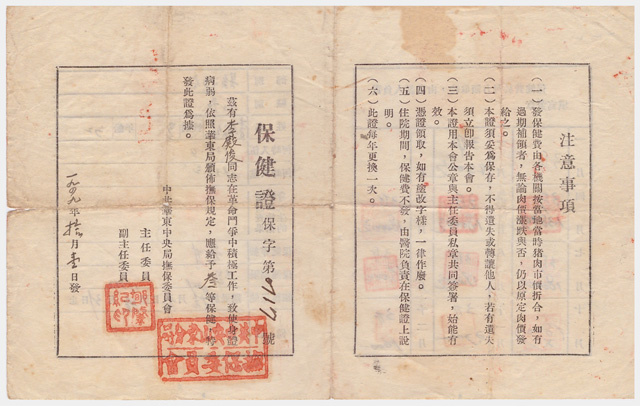 注意事項
(一)發保健費由各機關按當地當時猪肉市價折合，如有
過期補領者，無論肉價漲跌與否，仍以原定肉價發
給之。
(二)本證須妥爲保存，不得遺失或轉讓他人，若有遺失
須立卽報告本會。
(三)本證用本會公章與主任委員私章共同簽署，始能有
效。
(四)憑證領取，如有塗改字樣，一律作廢。
(五)住院期間，保健費不發，由醫院負責在保健證上說
明。
(六)此證每年更換一次。
保健證 保字第6117號
茲有李殿俊同志在革命鬥爭中積極工作，致使身體
病弱，依照華東局頒佈撫保規定，應給予叁等保健，特
發此證爲據。
中共華東中央局撫保委員會
主任委員
副主任委員
一九四九年拾月壹日發